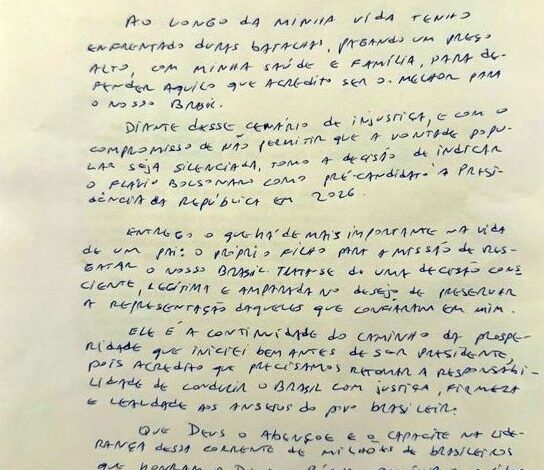 AO LONGO DA MINHA VIDA TENHO
ENFRENTADO DURAS BATALHAS, PAGANDO UM PREÇO
ALTO, COM MINHA SAÚDE E FAMÍLIA, PARA DE-
FENDER AQUILO QUE ACREDITO SER O MELHOR PARA
O NOSSO BRASIL.
DIANTE DESSE CENÁRIO DE INJUSTIÇA, E COM O
COMPROMISSO DE NÃO PERMITIR QUE A VONTADE POPU-
LAR SEJA SILENCIADA, TOMO A DECISÃO DE INDICAR
O FLÁVIO BOLSONARO COMO PRÉ-CANDIDATO À PRESI-
DÊNCIA DA REPÚBLICA EM 2026.
ENTREGO O QUE HÁ DE MAIS IMPORTANTE NA VIDA
DE UM PAI: O PRÓPRIO FILHO PARA A MISSÃO DE RES-
GATAR O NOSSO BRASIL. TRATA-SE DE UMA DECISÃO CONS-
CIENTE, LEGÍTIMA E AMPARADA NO DESEJO DE PRESERVAR
A REPRESENTAÇÃO DAQUELES QUE CONFIARAM EM MIM.
ELE É A CONTINUIDADE DO CAMINHO DA PROSPE-
RIDADE QUE INICIEI BEM ANTES DE SER PRESIDENTE,
POIS ACREDITO QUE PRECISAMOS RETOMAR A RESPONSABI-
LIDADE DE CONDUZIR O BRASIL COM JUSTIÇA, FIRMEZA
E LEALDADE AOS ANSEIOS DO POVO BRASILEIRO.
QUE DEUS O ABENÇOE E O CAPACITE NA LIDE-
RANÇA DESSA CORRENTE DE MILHÕES DE BRASILEIROS
QUE HONRAM A DEUS